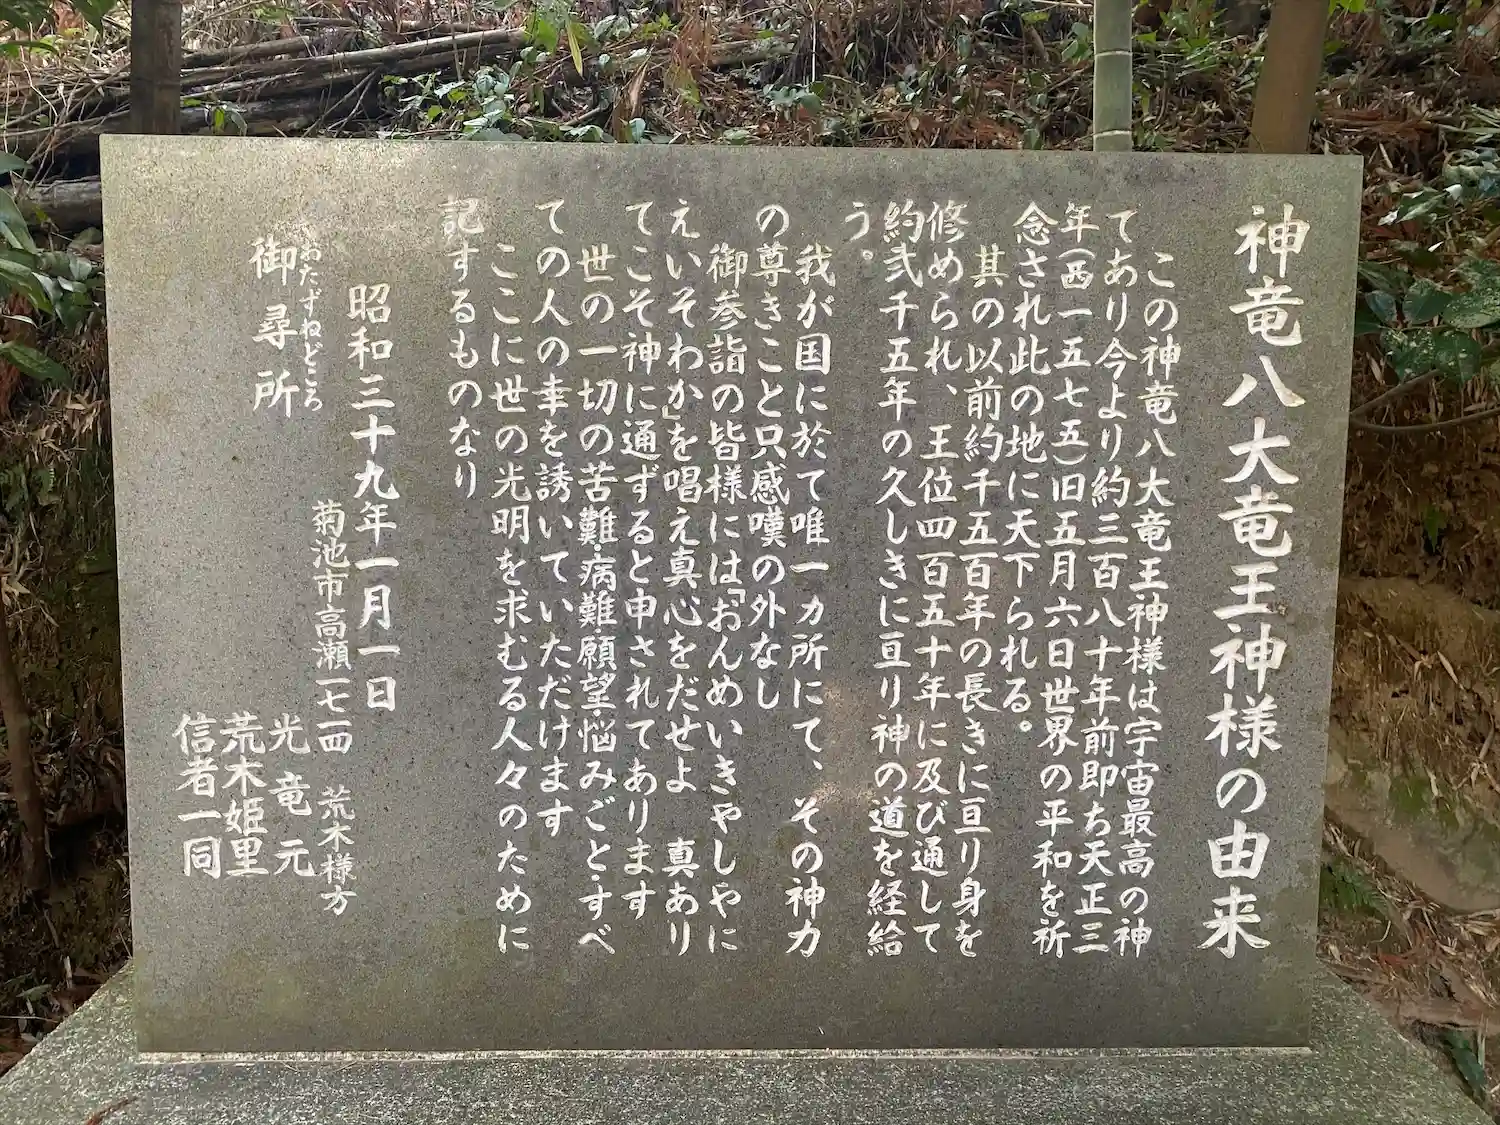 神竜八大竜王神様の由来
この神竜八大竜王神様は宇宙最高の神
であり今より約三百八十年前即ち天正三
年(西一五七五)旧五月六日世界の平和を祈
念され此の地に天下られる。
其の以前約千五百年の長きに亘り身を
修められ、王位四百五十年に及び通して
約弐千五年の久しきに亘り神の道を経給
う。
我が国に於て唯一ヵ所にて、その神力
の尊きこと只感嘆の外なし
御参詣の皆様には「おんめいきやしやに
えいそわか」を唱え真心をだせよ 真あり
てこそ神に通ずると申されてあります
世の一切の苦難・病難・願望・悩みごと・すべ
ての人の幸を誘いていただけます
ここに世の光明を求むる人々のために
記するものなり
昭和三十九年一月一日
菊池市高瀬一七一四 荒木様方
おたずねどころ
御尋所
光竜元
荒木姫里
信者一同